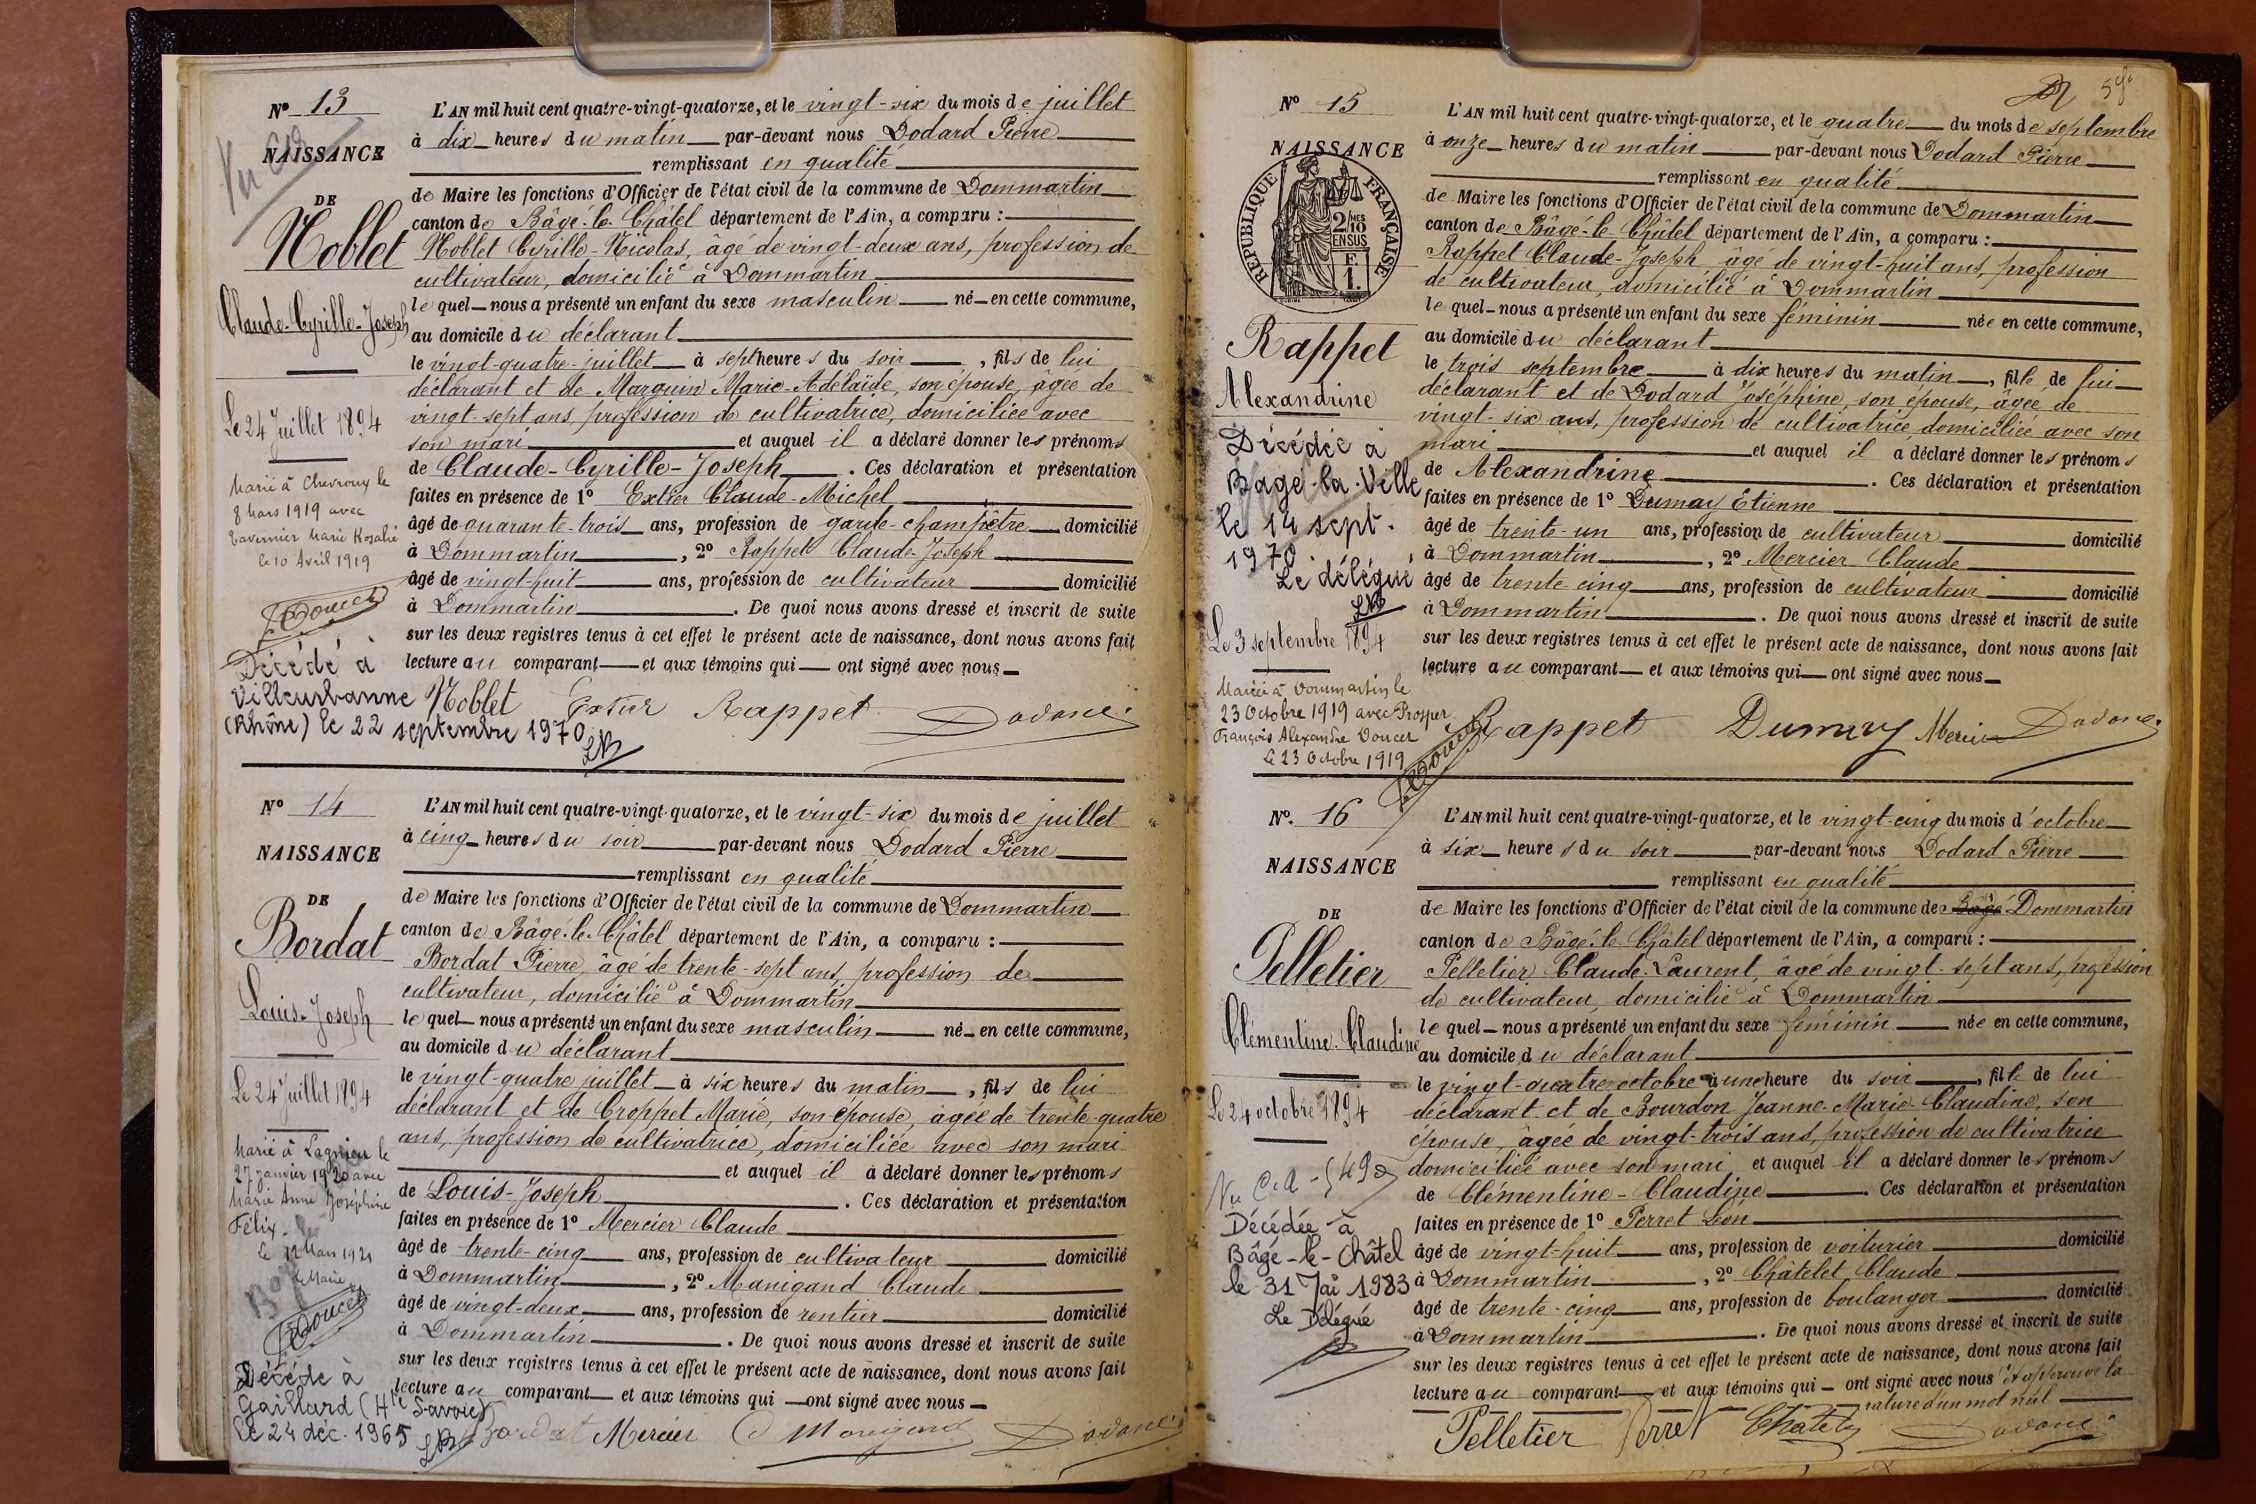 Nº 13
Vu
NAISSANCE
DE
Noblet
Claude-Cyrille-Joseph
Le 24 Juillet 1894
Marié à Chevroux le
8 Mars 1919 avec
Tavernier Marie Rosalie
le 10 Avril 1919
Doucet
Décédé à
Villeurbanne
(Rhône) le 22 septembre 1970
L'AN mil huit cent quatre-vingt-quatorze, et le vingt-six du mois de juillet
à dix heures du matin par-devant nous Dodard Pierre
remplissant en qualité
de Maire les fonctions d'Officier de l'état civil de la commune de Dommartin
canton de Bâgé-le-Châtel département de l'Ain, a comparu :
Noblet Cyrille-Nicolas, âgé de vingt-deux ans, profession de
cultivateur, domicilié à Dommartin
lequel nous a présenté un enfant du sexe masculin né en cette commune,
au domicile du déclarant
le vingt-quatre juillet à sept heures du soir, fils de lui
déclarant et de Marguin Marie-Adélaïde, son épouse, âgée de
vingt-sept ans, profession de cultivatrice, domiciliée avec
son mari et auquel il a déclaré donner les prénoms
de Claude-Cyrille-Joseph. Ces déclaration et présentation
faites en présence de 1º Extier Claude-Michel
âgé de quarante-trois ans, profession de garde-champêtre domicilié
à Dommartin, 2º Rappet Claude-Joseph
âgé de vingt-huit ans, profession de cultivateur domicilié
à Dommartin. De quoi nous avons dressé et inscrit de suite
sur les deux registres tenus à cet effet le présent acte de naissance, dont nous avons fait
lecture au comparant et aux témoins qui ont signé avec nous
Noblet Extier Rappet Dodard
Nº 14
NAISSANCE
DE
Bordat
Louis-Joseph
Le 24 Juillet 1894
Marié à Lagnieu le
27 janvier 1920 avec
Marie Anne Joséphine
Félix
Le Maire
Doucet
Décédé à
Gaillard (Hte Savoie)
le 24 déc. 1965
L'AN mil huit cent quatre-vingt-quatorze, et le vingt-six du mois de juillet
à cinq heures du soir par-devant nous Dodard Pierre
remplissant en qualité
de Maire les fonctions d'Officier de l'état civil de la commune de Dommartin
canton de Bâgé-le-Châtel département de l'Ain, a comparu :
Bordat Pierre, âgé de trente-sept ans, profession de
cultivateur, domicilié à Dommartin
lequel nous a présenté un enfant du sexe masculin né en cette commune,
au domicile du déclarant
le vingt-quatre juillet à six heures du matin, fils de lui
déclarant et de Croppet Marie, son épouse, âgée de trente-quatre
ans, profession de cultivatrice, domiciliée avec son mari
et auquel il a déclaré donner les prénoms
de Louis-Joseph. Ces déclaration et présentation
faites en présence de 1º Mercier Claude
âgé de trente-cinq ans, profession de cultivateur domicilié
à Dommartin, 2º Manigand Claude
âgé de vingt-deux ans, profession de rentier domicilié
à Dommartin. De quoi nous avons dressé et inscrit de suite
sur les deux registres tenus à cet effet le présent acte de naissance, dont nous avons fait
lecture au comparant et aux témoins qui ont signé avec nous
Bordat Mercier C Manigand Dodard
Nº 15
NAISSANCE
RÉPUBLIQUE FRANÇAISE
2/10 MES
EN SUS
F.
1.
Rappet
Alexandrine
Décédée à
Bâgé-la-Ville
le 14 sept.
1970
Le délégué
Le 3 septembre 1894
Mariée à Dommartin le
23 Octobre 1919 avec Prosper
François Alexandre Doucet
Le 23 Octobre 1919
Doucet
L'AN mil huit cent quatre-vingt-quatorze, et le quatre du mois de septembre
à onze heures du matin par-devant nous Dodard Pierre
remplissant en qualité
de Maire les fonctions d'Officier de l'état civil de la commune de Dommartin
canton de Bâgé-le-Châtel département de l'Ain, a comparu :
Rappet Claude-Joseph âgé de vingt-huit ans, profession
de cultivateur, domicilié à Dommartin
lequel nous a présenté un enfant du sexe féminin née en cette commune,
au domicile du déclarant
le trois septembre à dix heures du matin, fille de lui
déclarant et de Dodard Joséphine, son épouse, âgée de
vingt-six ans, profession de cultivatrice, domiciliée avec son
mari et auquel il a déclaré donner les prénoms
de Alexandrine. Ces déclaration et présentation
faites en présence de 1º Dumay Etienne
âgé de trente-un ans, profession de cultivateur domicilié
à Dommartin, 2º Mercier Claude
âgé de trente cinq ans, profession de cultivateur domicilié
à Dommartin. De quoi nous avons dressé et inscrit de suite
sur les deux registres tenus à cet effet le présent acte de naissance, dont nous avons fait
lecture au comparant et aux témoins qui ont signé avec nous
Rappet Dumay Mercier Dodard
Nº. 16
NAISSANCE
DE
Pelletier
Clémentine-Claudine
Le 24 octobre 1894
Décédée à
Bâgé-le-Châtel
le 31 Mai 1983
Le Délégué
L'AN mil huit cent quatre-vingt-quatorze, et le vingt-cinq du mois d'octobre
à six heures du soir par-devant nous Dodard Pierre
remplissant en qualité
de Maire les fonctions d'Officier de l'état civil de la commune de Bâgé Dommartin
canton de Bâgé-le-Châtel département de l'Ain, a comparu :
Pelletier Claude-Laurent, âgé de vingt-sept ans, profession
de cultivateur, domicilié à Dommartin
lequel nous a présenté un enfant du sexe féminin née en cette commune,
au domicile du déclarant
le vingt-quatre octobre à une heure du soir, fille de lui
déclarant et de Bourdon Jeanne-Marie Claudine, son
épouse, âgée de vingt-trois ans, profession de cultivatrice
domiciliée avec son mari et auquel il a déclaré donner les prénoms
de Clémentine-Claudine. Ces déclaration et présentation
faites en présence de 1º Perret Léon
âgé de vingt-huit ans, profession de voiturier domicilié
à Dommartin, 2º Châtelet Claude
âgé de trente-cinq ans, profession de boulanger domicilié
à Dommartin. De quoi nous avons dressé et inscrit de suite
sur les deux registres tenus à cet effet le présent acte de naissance, dont nous avons fait
lecture au comparant et aux témoins qui ont signé avec nous et approuvé la
rature d'un mot nul
Pelletier Perret Châtelet Dodard